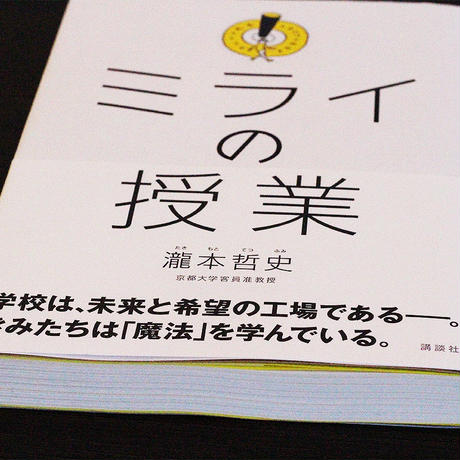 ミライ
の
授業
たき もと てつ ふみ
瀧本哲史
京都大学客員准教授
学校は、未来と希望の工場である――。
みたちは「魔法」を学んでいる。
講談社